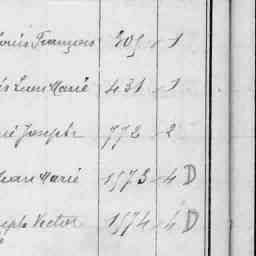 ouis François 305 1
is Leon Marie 431 1
né Joseph 772 2
Jean Marie 1573 4 D
seph Victor 1574 4 D